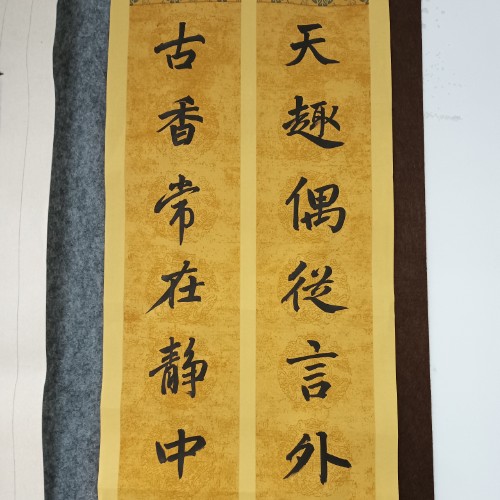 天趣偶從言外
古香常在静中